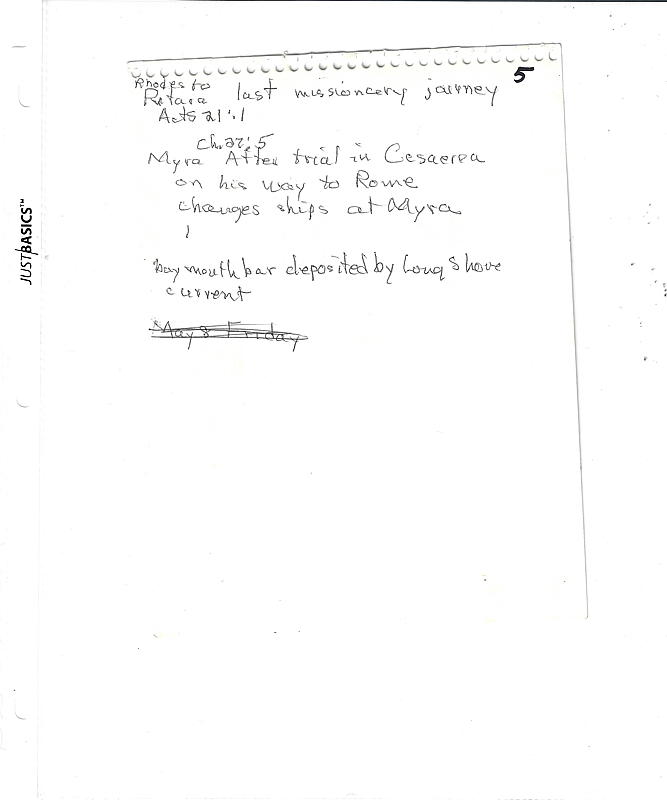 5
Rhodes to
Patara last missionery journey
Acts 21:1
Ch. 27:5
Myra After trial in Cesaerea
on his way to Rome
changes ships at Myra
bay mouth bar deposited by Long Shore
current
May 8 Friday
JUST BASICS™